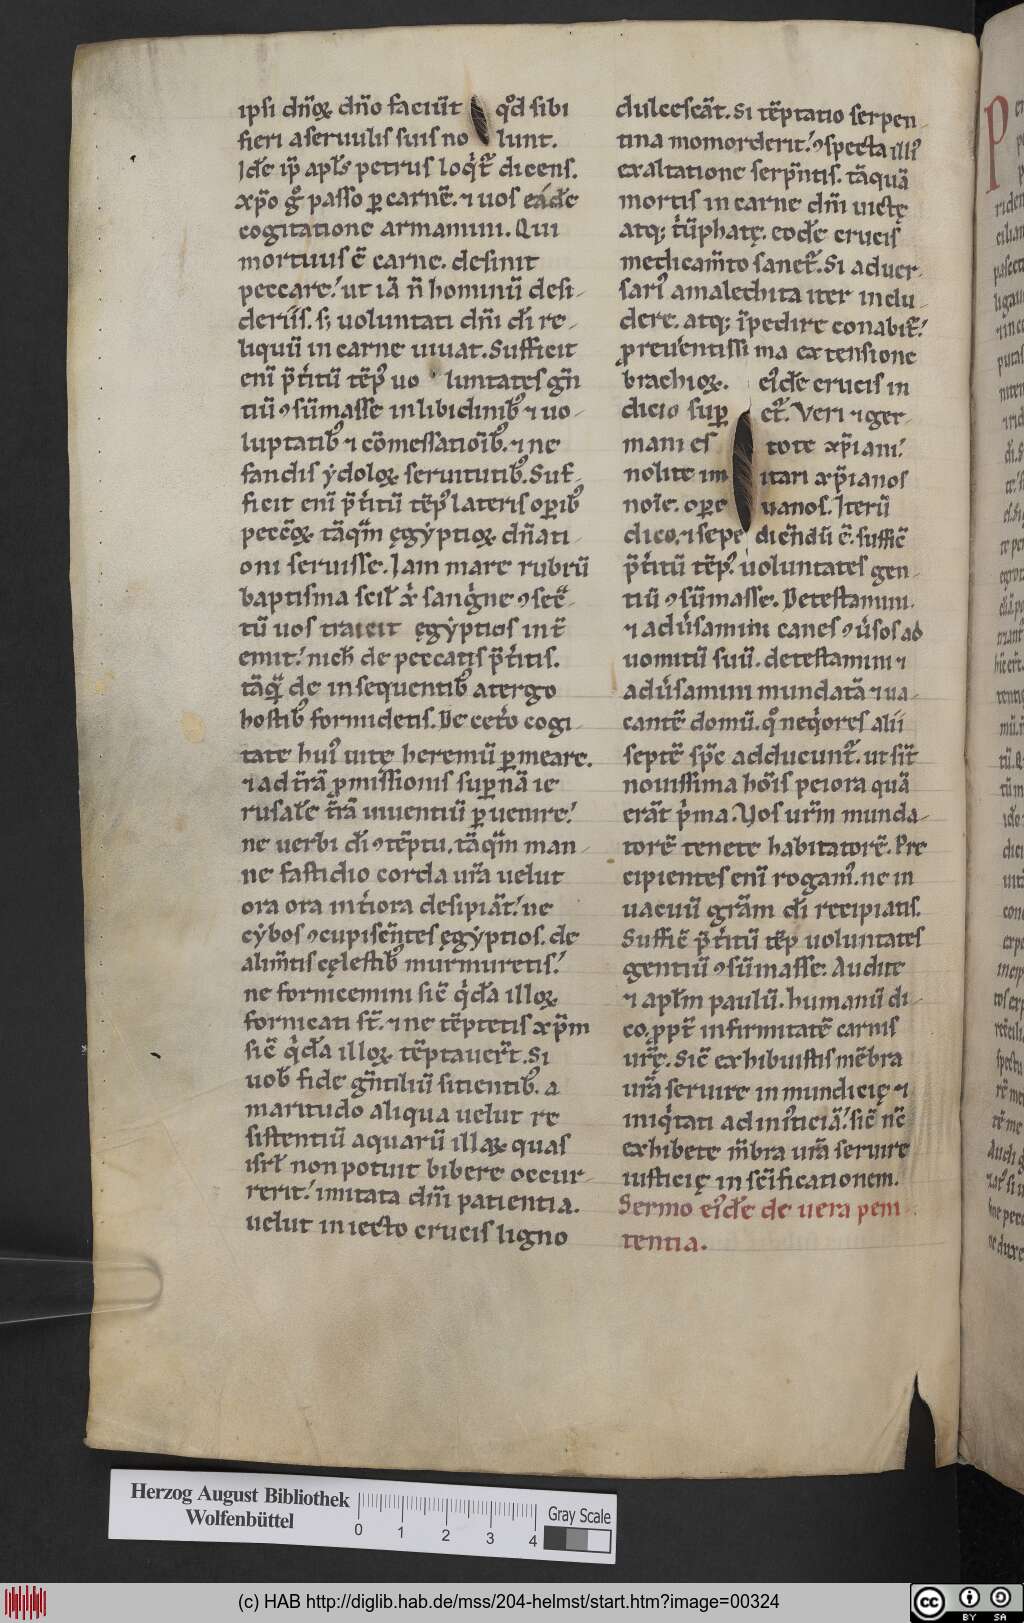 ipsi dn̄oꝝ dn̄o faciūt qd̊ sibi
fieri a seruulis suis no lunt.
Idē ip̄ apl̄s petrus loqͥt᷑ dicens.
xp̄o gͦ passo ꝑ carnē. ⁊ uos eadē
cogitatione armamini. Qui
mortuus ē carne. desinit
peccare. ut iā n̄ hominū desi-
deriis. sꝫ uoluntati dn̄i di᷑ re-
liquū in carne uiuat. Sufficit
eni᷑ p̄tͥitū tēp᷒ uo luntates gn̄
tiū ꝯsūmasse in libidinib᷒ ⁊ uo-
luptatib᷒ ⁊ cōmessatioīb᷒. ⁊ ne
fandis ẏdoloꝝ seruitutib᷒. Suf-
ficit eni᷑ p̄tͥitū tēp᷒ lateris oꝑib᷒
peccōꝝ tāqͣm ęgẏptioꝝ dn̄ati-
oni seruisse. Iam mare rubrū
baptisma scil᷑ xͥ sangͥne ꝯsec̄-
tū uos traiecit ęgẏptios int̄
emit. nich᷑ de peccatis p̄tͥitis.
tāqͣ de insequentib᷒ a tergo
hostib᷒ formidetis. De cet᷑o cogi-
tate hui᷒ uitę heremū ꝑmeare.
⁊ ad tr̄ā ꝓmissionis suꝑnā ie
rusalē tr̄ā uiuentiū ꝑuenire.
ne uerbi di᷑ ꝯtēptu. tāqͣm man-
ne fastidio corda ur̄a uelut
ora ora int᷑iora desipiāt. ne
cẏbos ꝯcupiscn̄tes ęgẏptios. de
alim̄tis cęlestib᷒ murmuretis.
ne fornicemini sic̄ qͥdā illoꝝ
fornicati st̄. ⁊ ne tēptetis xp̄m
sic̄ qͥdā illoꝝ tēptauer̄t. Si
uob᷑ fide gn̄tiliū sitientib᷒. a
maritudo aliqua uelut re
sistentiū aquarū illaꝝ quas
isrl᷑ non potuit bibere occur-
rerit. imitata dn̄i patientia.
uelut iniecto crucis ligno
dulcescāt. Si tēptatio serpen-
tina momorderit. ꝯspecta illi᷒
exaltatione serp̄ntis. tāquā
mortis in carne dn̄i uictę
atqꝫ tͥūphatę. eodē crucis
medicam̄to sanet᷑. Si aduer-
sari᷒ amalechita iter inclu-
dere. atqꝫ īpedire conabit᷑.
preuentissi ma extensione
brachioꝝ. ei᷒dē crucis in
dicio suꝑ et᷑. Veri ⁊ ger-
mani es tote xp̄iani.
nolite im itari xp̄ianos
noīe. oꝑe uanos. Iterū
dico. ⁊ sepe dicn̄dū ē. suffic̄
p̄tͥitū tēp᷒. uoluntates gen-
tiū ꝯsūmasse. Detestamini.
⁊ adu᷑samini canes ꝯu᷑sos ad
uomitū suū. detestamini ⁊
adu᷑samini mundatā ⁊ ua-
cantē domū. qͦ neqͥores alii
septē sp̄c adducunt᷑. ut sīt
nouissima hōis peiora quā
erāt pͥma. Vos ur̄m munda-
torē tenete habitatorē. Pre
cipientes eni᷑ rogam᷒. ne in
uacuū gr̄am di᷑ recipiatis.
Suffic̄ p̄tͥitū tēp uoluntates
gentiū ꝯsūmasse. Audite
⁊ apl̄m paulū. humanū di-
co. ꝓpt̄ infirmitatē carnis
ur̄ę. Sic̄ exhibuistis mēbra
ur̄a seruire inmundicię ⁊
iniqͥtati ad iniͥticiā. sic̄ nc̄
exhibete m̄bra ur̄a seruire
iusticię in sci᷑ficationem.
Sermo ei᷒dē de uera peni
tentia.
Herzog August Bibliothek
Wolfenbüttel
0 1 2 3 4
Gray Scale
(c) HAB http://diglib.hab.de/mss/204-helmst/start.htm?image=00324
cc BY SA